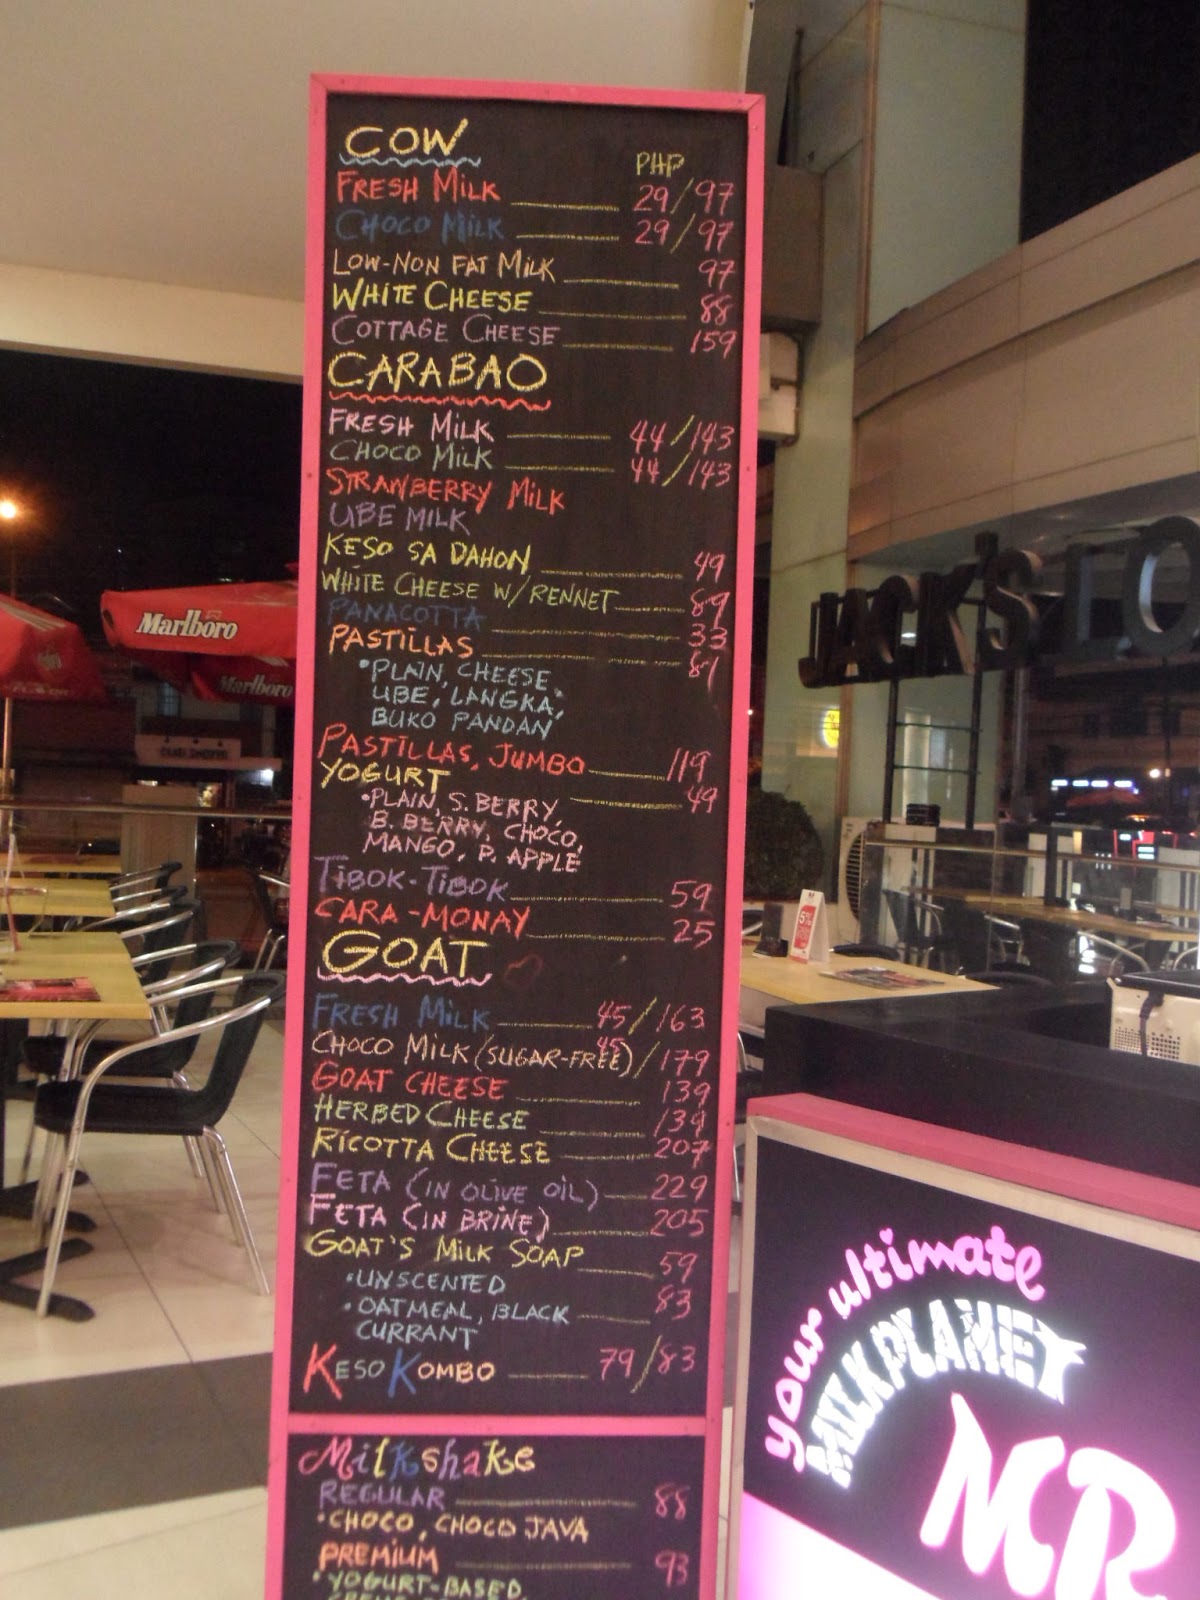 COW
PHP
FRESH MILK 29/97
CHOCO MILK 29/97
LOW-NON FAT MILK 97
WHITE CHEESE 88
COTTAGE CHEESE 159
CARABAO
FRESH MILK 44/143
CHOCO MILK 44/143
STRAWBERRY MILK
UBE MILK
KESO SA DAHON 49
WHITE CHEESE W/ RENNET 89
PANACOTTA 33
PASTILLAS 81
•PLAIN, CHEESE
UBE, LANGKA,
BUKO PANDAN
PASTILLAS, JUMBO 119
YOGURT 49
•PLAIN, S. BERRY,
B. BERRY, CHOCO,
MANGO, P. APPLE
TIBOK-TIBOK 59
CARA-MONAY 25
GOAT
FRESH MILK 45/163
CHOCO MILK (SUGAR-FREE) 45/179
GOAT CHEESE 139
HERBED CHEESE 139
RICOTTA CHEESE 207
FETA (IN OLIVE OIL) 229
FETA (IN BRINE) 205
GOAT'S MILK SOAP 59
•UNSCENTED
•OATMEAL, BLACK 83
CURRANT
KESO KOMBO 79/83
Milkshake
REGULAR 88
•CHOCO, CHOCO JAVA
PREMIUM 93
•YOGURT-BASED,
Marlboro
Marlboro
JACK'S LO
your ultimate
MILK PLANET
MR